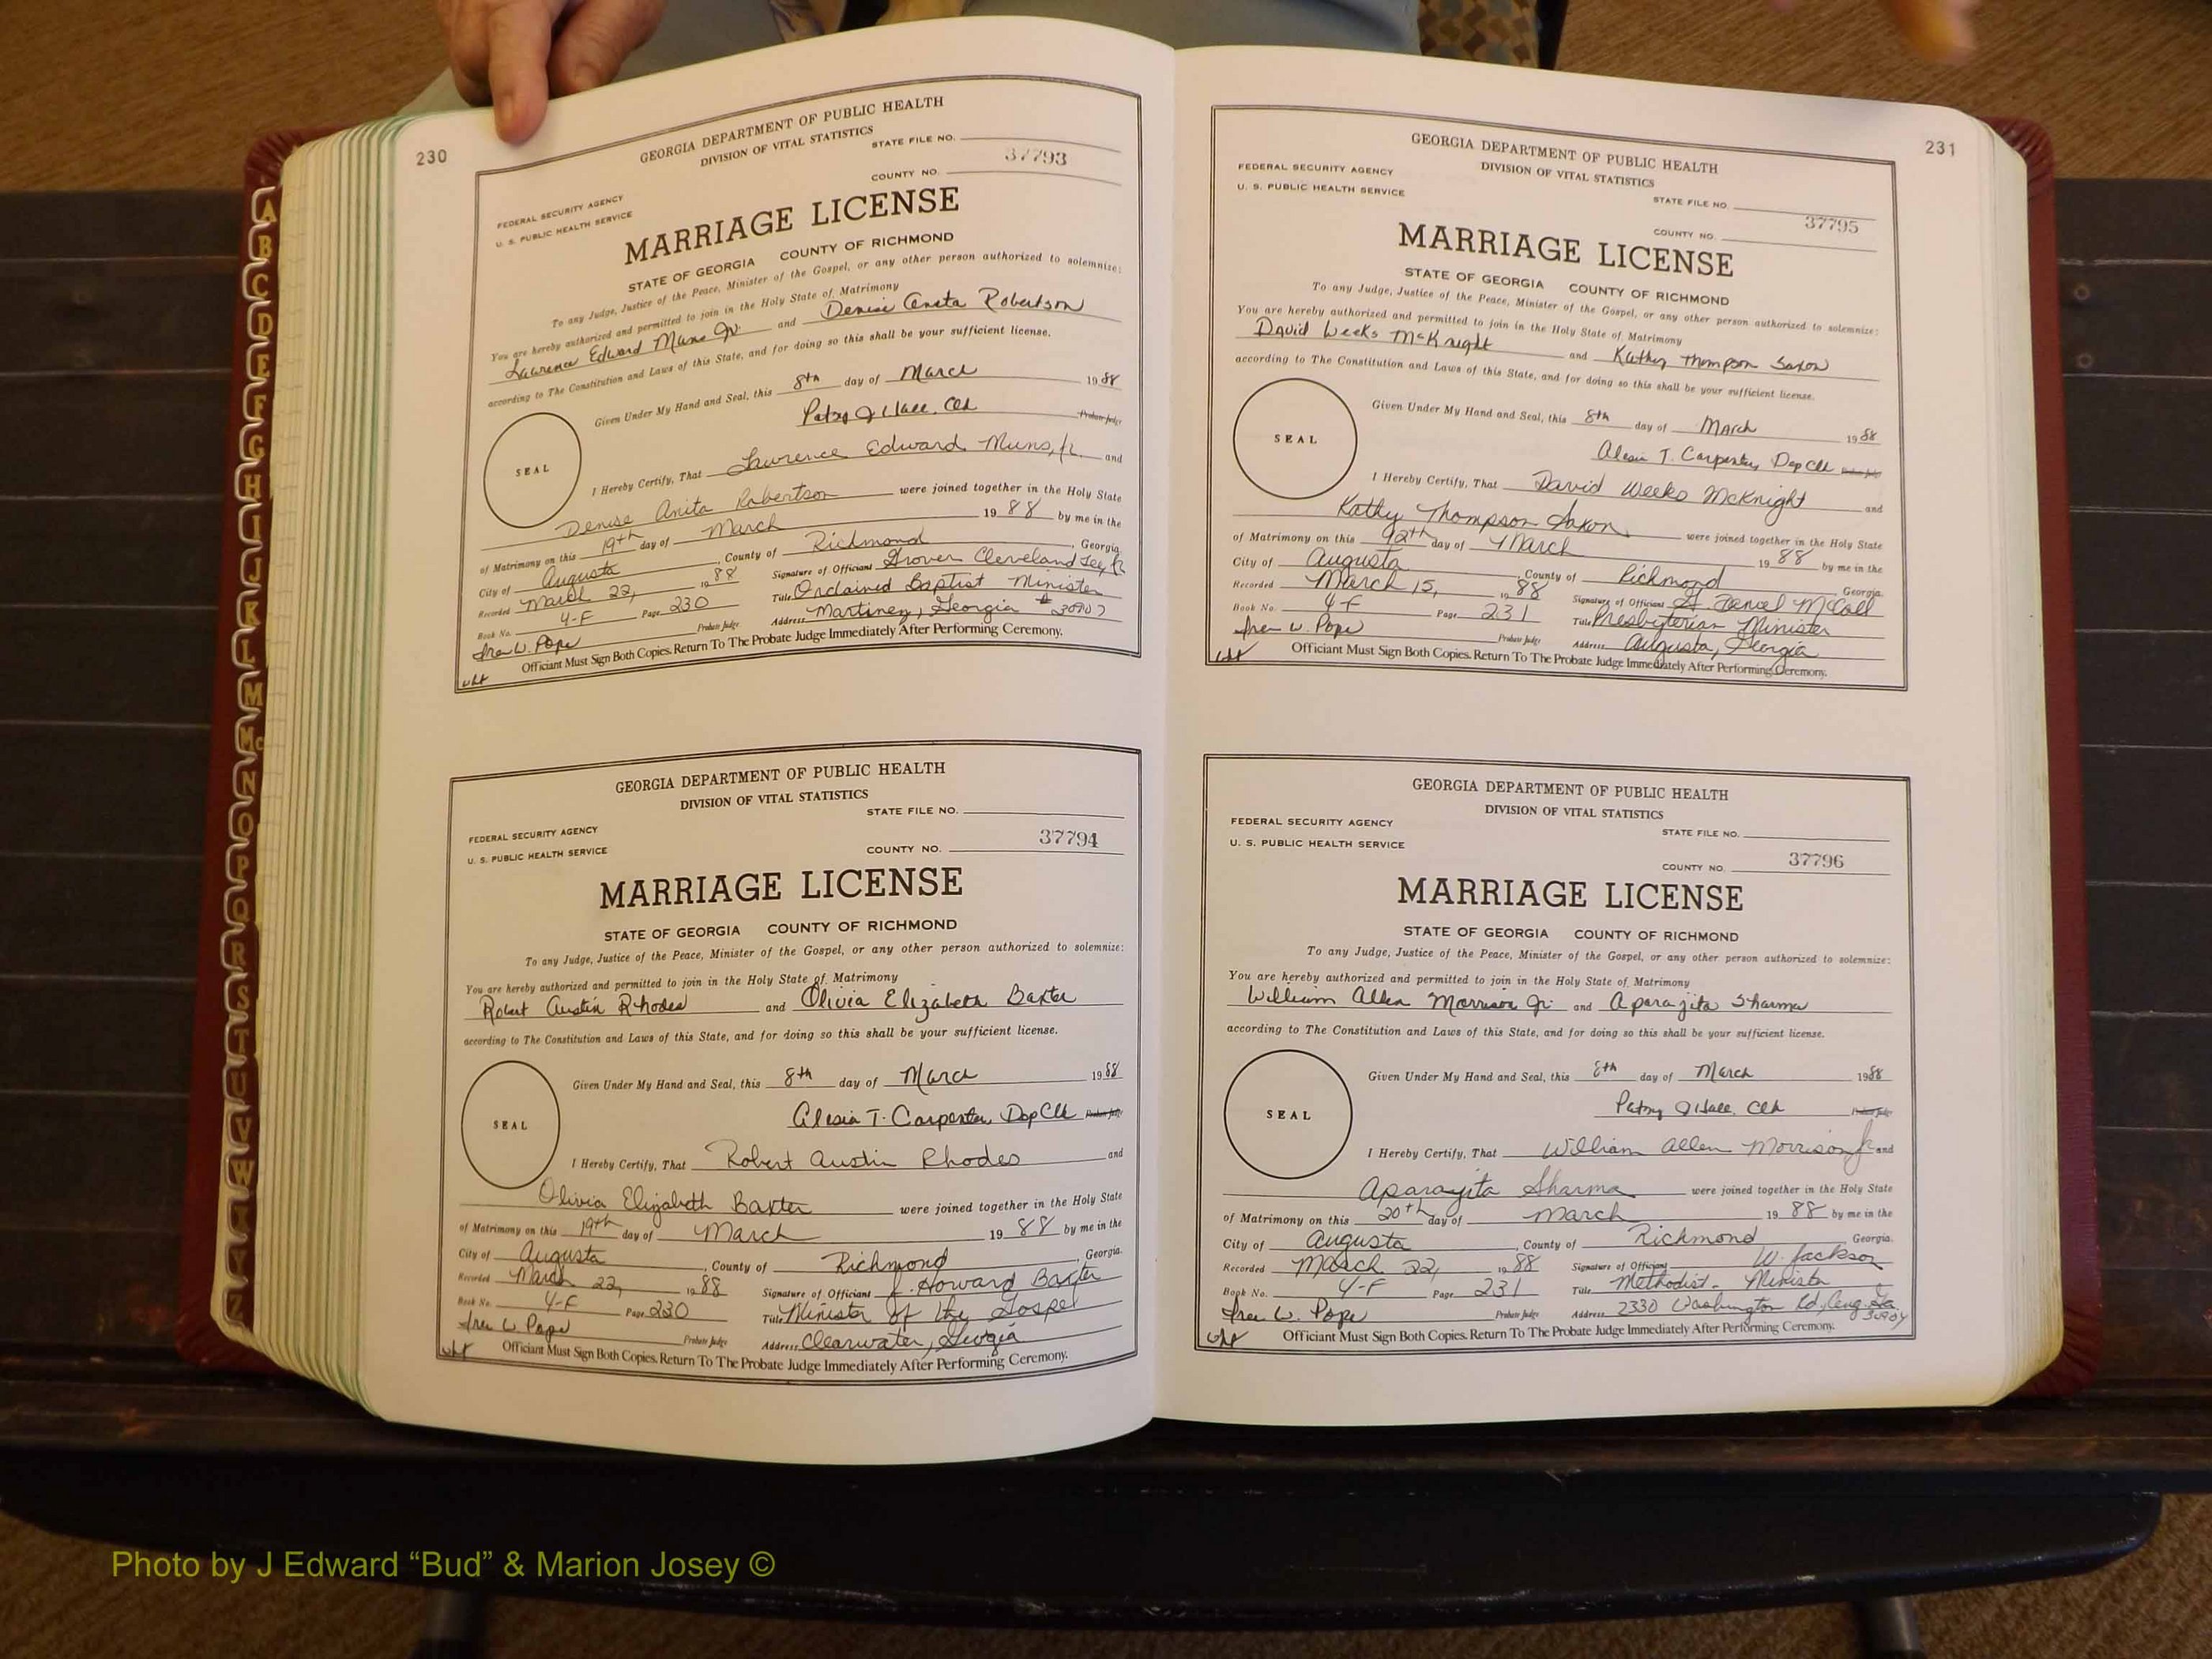 230
GEORGIA DEPARTMENT OF PUBLIC HEALTH
DIVISION OF VITAL STATISTICS
STATE FILE NO.
37793
FEDERAL SECURITY AGENCY
COUNTY NO.
U. S. PUBLIC HEALTH SERVICE
MARRIAGE LICENSE
STATE OF GEORGIA COUNTY OF RICHMOND
To any Judge, Justice of the Peace, Minister of the Gospel, or any other person authorized to solemnize:
You are hereby authorized and permitted to join in the Holy State of Matrimony
Lawrence Edward Muns Jr. and Denise Robertson
according to The Constitution and Laws of this State, and for doing so this shall be your sufficient license.
Given Under My Hand and Seal, this 8th day of March 1988
Patsy J Hall, Clk Probate Judge
SEAL
I Hereby Certify, That Lawrence Edward Muns, Jr. and
Denise Anita Robertson were joined together in the Holy State
of Matrimony on this 19th day of March 1988 by me in the
City of Augusta, County of Richmond, Georgia.
Recorded March 22, 1988 Signature of Officiant Grover Cleveland Lee, Jr
Book No. 4-F Page 230 Title Ordained Baptist Minister
Probate Judge Address Martinez, Georgia 30907
W. Pope
Officiant Must Sign Both Copies. Return To The Probate Judge Immediately After Performing Ceremony.
GEORGIA DEPARTMENT OF PUBLIC HEALTH
DIVISION OF VITAL STATISTICS
STATE FILE NO.
FEDERAL SECURITY AGENCY
37794
U. S. PUBLIC HEALTH SERVICE COUNTY NO.
MARRIAGE LICENSE
STATE OF GEORGIA COUNTY OF RICHMOND
To any Judge, Justice of the Peace, Minister of the Gospel, or any other person authorized to solemnize:
You are hereby authorized and permitted to join in the Holy State of Matrimony
Robert Austin Rhodes and Olivia Elizabeth Baxter
according to The Constitution and Laws of this State, and for doing so this shall be your sufficient license.
Given Under My Hand and Seal, this 8th day of March 1988
Alesia T. Carpenter, Dep Clk Probate Judge
SEAL
I Hereby Certify, That Robert Austin Rhodes and
Olivia Elizabeth Baxter were joined together in the Holy State
of Matrimony on this 19th day of March 1988 by me in the
City of Augusta, County of Richmond, Georgia.
Recorded March 22, 1988 Signature of Officiant J. Howard Baxter
Book No. 4-F Page 230 Title Minister of the Gospel
W. Pope Probate Judge Address Clearwater, Georgia
Officiant Must Sign Both Copies. Return To The Probate Judge Immediately After Performing Ceremony.
231
GEORGIA DEPARTMENT OF PUBLIC HEALTH
DIVISION OF VITAL STATISTICS
FEDERAL SECURITY AGENCY
U. S. PUBLIC HEALTH SERVICE
STATE FILE NO.
37795
COUNTY NO.
MARRIAGE LICENSE
STATE OF GEORGIA COUNTY OF RICHMOND
To any Judge, Justice of the Peace, Minister of the Gospel, or any other person authorized to solemnize:
You are hereby authorized and permitted to join in the Holy State of Matrimony
David Weeks McKnight and Kathy Thompson Saxon
according to The Constitution and Laws of this State, and for doing so this shall be your sufficient license.
Given Under My Hand and Seal, this 8th day of March 1988
Alesia T. Carpenter, Dep Clk Probate Judge
SEAL
I Hereby Certify, That David Weeks McKnight and
Kathy Thompson Saxon were joined together in the Holy State
of Matrimony on this day of March 1988 by me in the
City of Augusta, County of Richmond, Georgia.
Recorded March 15, 1988 Signature of Officiant McCall
Book No. 4-F Page 231 Title Presbyterian Minister
W. Pope Probate Judge Address Augusta, Georgia
Officiant Must Sign Both Copies. Return To The Probate Judge Immediately After Performing Ceremony.
GEORGIA DEPARTMENT OF PUBLIC HEALTH
DIVISION OF VITAL STATISTICS
FEDERAL SECURITY AGENCY
STATE FILE NO.
U. S. PUBLIC HEALTH SERVICE
37796
COUNTY NO.
MARRIAGE LICENSE
STATE OF GEORGIA COUNTY OF RICHMOND
To any Judge, Justice of the Peace, Minister of the Gospel, or any other person authorized to solemnize:
You are hereby authorized and permitted to join in the Holy State of Matrimony
William Allen Morrison Jr. and Aparajita Sharma
according to The Constitution and Laws of this State, and for doing so this shall be your sufficient license.
Given Under My Hand and Seal, this 8th day of March 1988
Patsy J Hall, Clk Probate Judge
SEAL
I Hereby Certify, That William Allen Morrison Jr. and
Aparajita Sharma were joined together in the Holy State
of Matrimony on this 20th day of March 1988 by me in the
City of Augusta, County of Richmond, Georgia.
Recorded March 22, 1988 Signature of Officiant W. Jackson
Book No. 4-F Page 231 Title Methodist - Minister
W. Pope Probate Judge Address 2330 Washington Rd, Aug. Ga. 30904
Officiant Must Sign Both Copies. Return To The Probate Judge Immediately After Performing Ceremony.
A
B
C
D
E
F
G
H
I
J
K
L
M
Mc
N
O
P
Q
R
S
T
U
V
W
X
Y
Z
Photo by J Edward “Bud” & Marion Josey ©